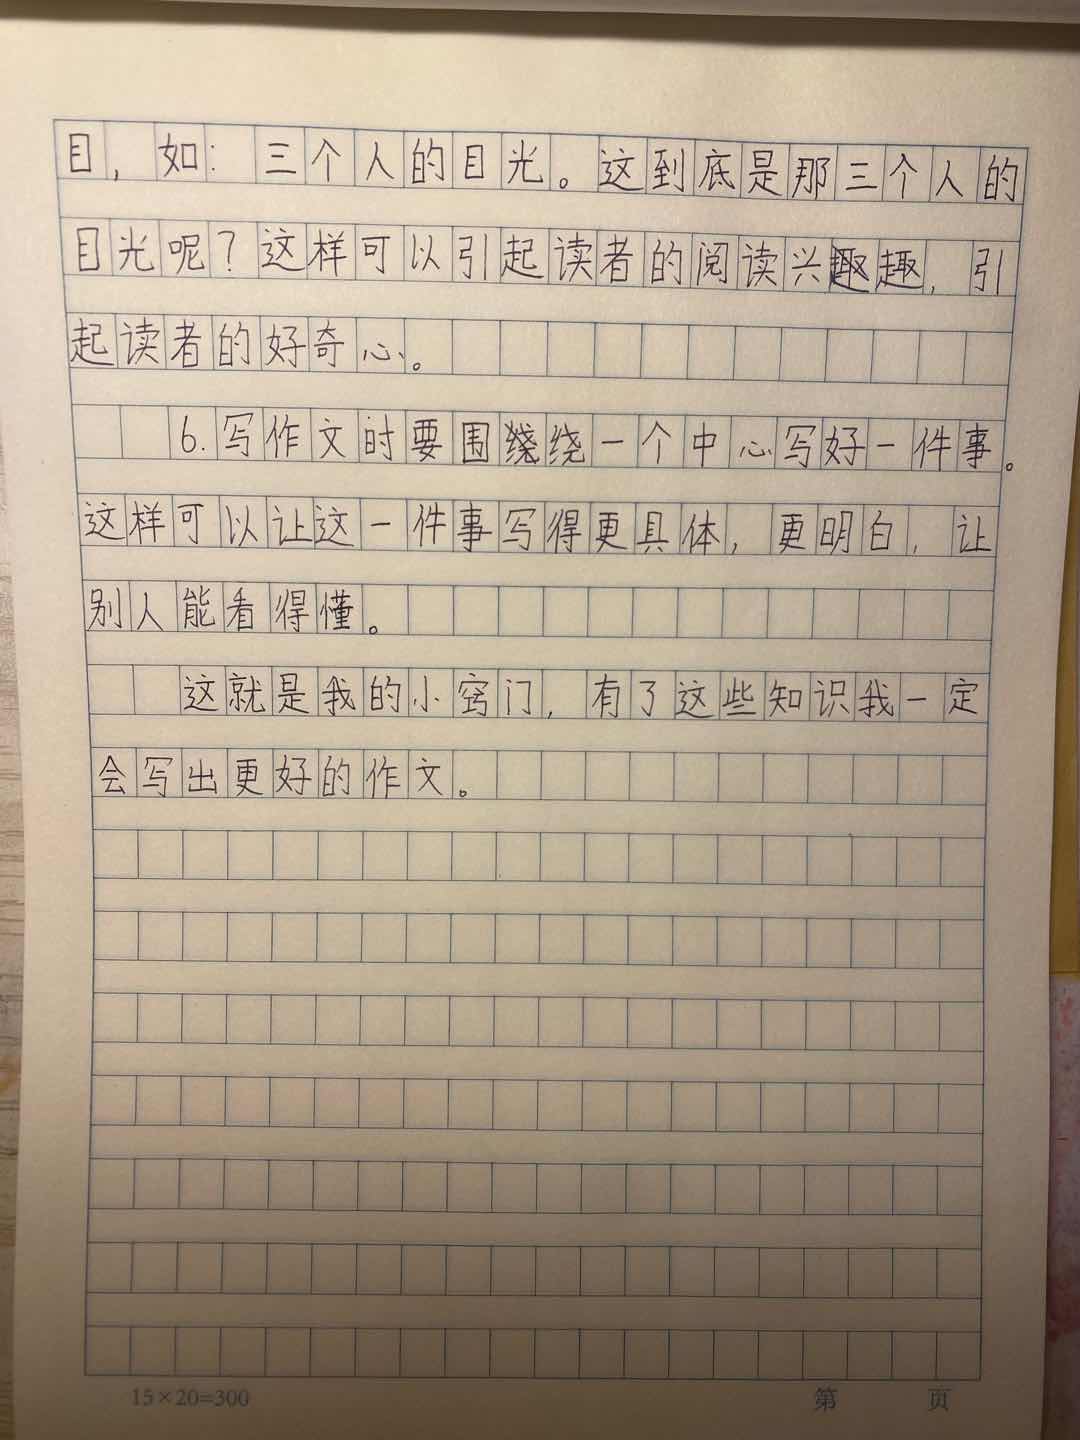 目，如：三个人的目光。这到底是那三个人的
目光呢？这样可以引起读者的阅读兴趣趣，引
起读者的好奇心。
6.写作文时要围绕绕一个中心写好一件事。
这样可以让这一件事写得更具体，更明白，让
别人能看得懂。
这就是我的小窍门，有了这些知识我一定
会写出更好的作文。
15×20=300
第 页